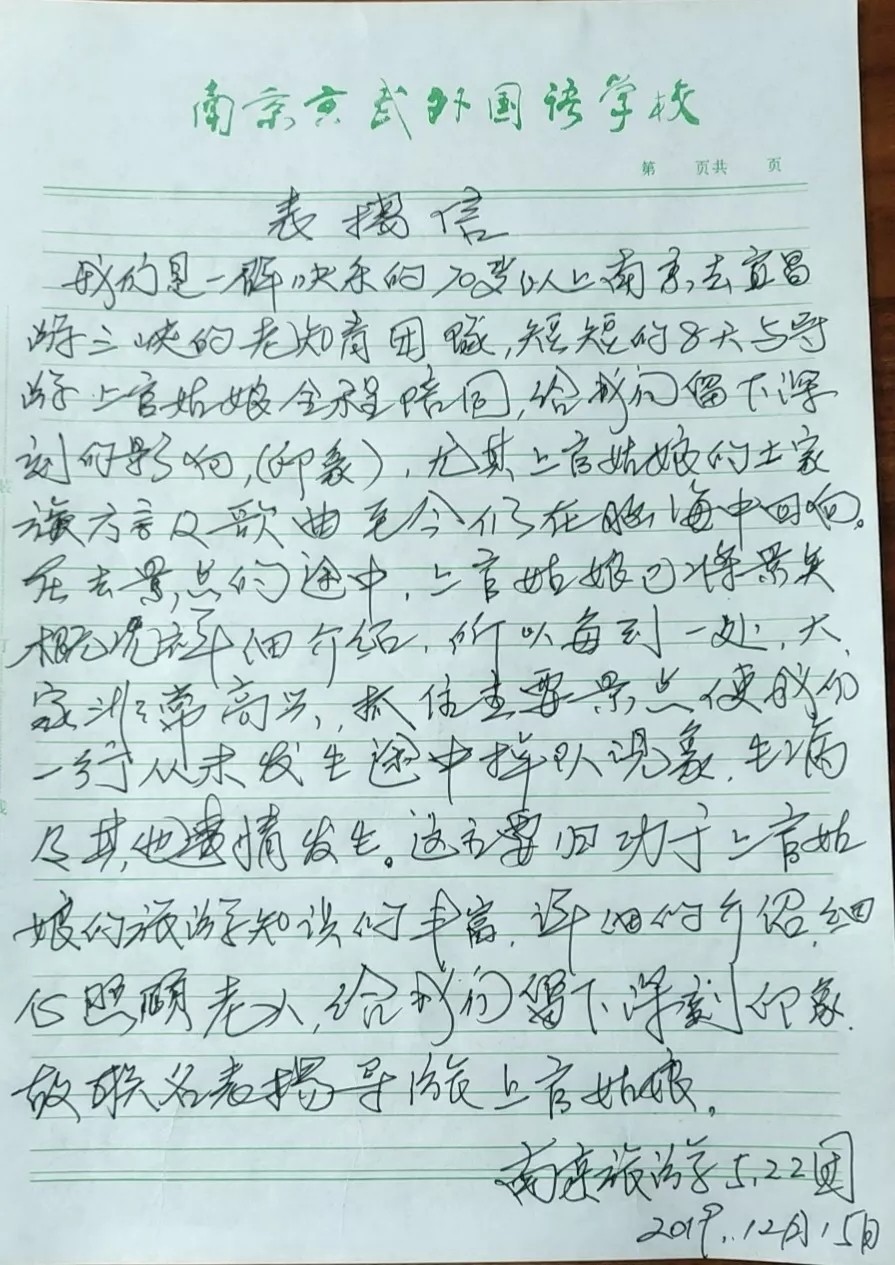 南京京武外国语学校
第 页共 页
表揚信
我们是一群快乐的70岁以上南京去宜昌
游三峡的老知青团队,短短的8天与导
游上官姑娘全程陪同,给我们留下深
刻的影响,(印象),尤其上官姑娘的土家
族方言及歌曲至今仍在脑海中回响。
在去景点的途中,上官姑娘已将景点
概况详细介绍,所以每到一处,大
家非常高兴,抓住主要景点使我们
一行从未发生途中掉队现象,生病
及其他事情发生。这主要归功于上官姑
娘的旅游知识的丰富,详细的介绍,细
心照顾老人,给我们留下深刻印象,
故联名表揚导游上官姑娘。
南京旅游5.22团
2019.12月15日